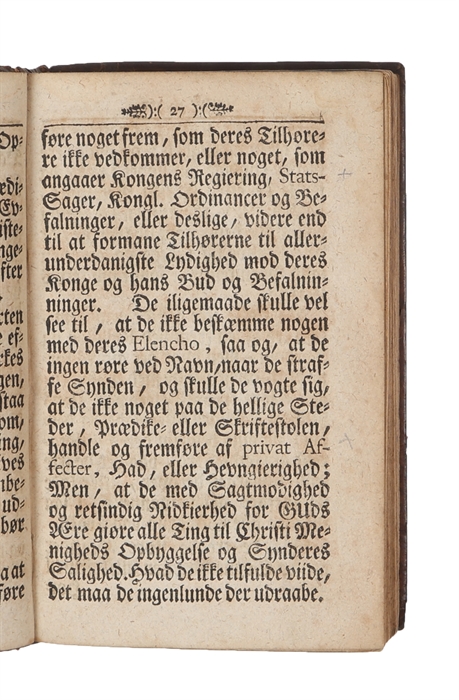 ):( 27 ):(
føre noget frem, som deres Tilhøre-
re ikke vedkommer, eller noget, som
angaaer Kongens Regiering, Stats-
Sager, Kongl. Ordinancer og Be-
falninger, eller deslige, videre end
til at formane Tilhørerne til aller-
underdanigste Lydighed mod deres
Konge og hans Bud og Befalnin-
ninger. De iligemaade skulle vel
see til, at de ikke beskæmme nogen
med deres Elencho, saa og, at de
ingen røre ved Navn, naar de straf-
fe Synden, og skulle de vogte sig,
at de ikke noget paa de hellige Ste-
der, Prædike- eller Skriftestolen,
handle og fremføre af privat Af-
fecter, Had, eller Hevngierighed;
Men, at de med Sagtmodighed
og retsindig Nidkierhed for GUds
Ære giøre alle Ting til Christi Me-
nigheds Opbyggelse og Synderes
Salighed. Hvad de ikke tilfulde viide,
det maa de ingenlunde der udraabe.
Op-
ædi-
Ev-
iste-
nge-
fter
rten
e ef-
rkes
gen,
staa
om,
ing,
ves
nbe-
ud-
bør
a at
føre